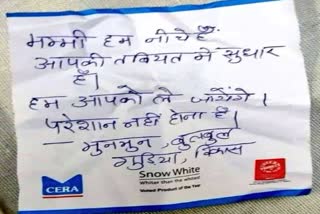 मम्मी हम नीचे हैं
आपकी तबियत में सुधार
है।
हम आपको ले जायेंगे।
परेशान नहीं होना है।
— मुनमुन, बुलबुल
गुड़िया, विकास
CERA
Snow White
Whiter than the whitest
Voted Product of the Year